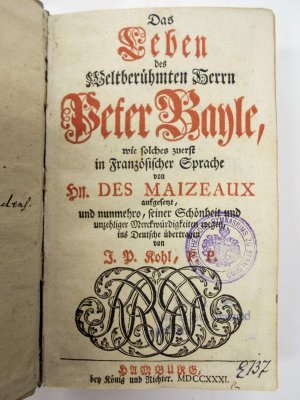 Das
Leben
des
Weltberühmten Herrn
Peter Bayle,
wie solches zuerst
in Französischer Sprache
von
Hn. DES MAIZEAUX
aufgesetzt,
und nunmehro, seiner Schönheit und
unzehliger Merckwürdigkeiten wegen,
ins Deutsche übertragen
von
J. P. Kohl, P. P.
HAMBURG,
bey König und Richter. MDCCXXXI.
2737